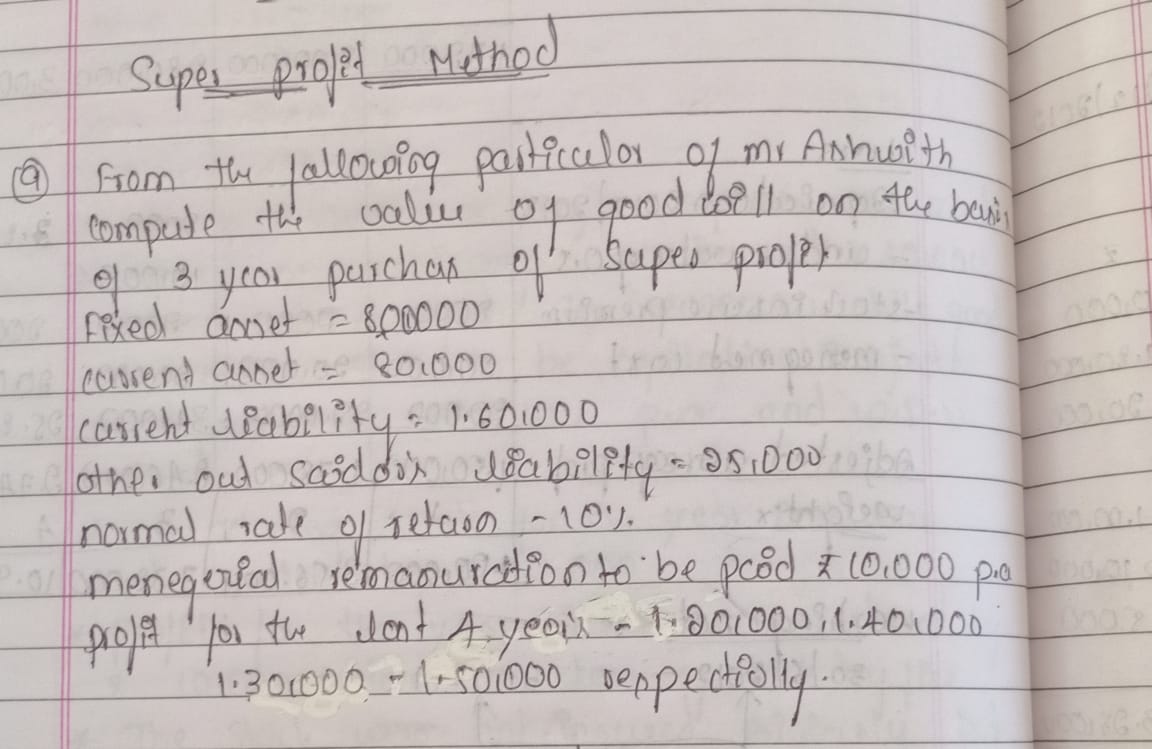 Super profit Method
Q from the following particular of mr Ashwith
compute the value of good will on the basis
of 3 year purchas of super profit
fixed asset = 8,00000
current asset = 80,000
current liability = 1.60,000
other out saiddors liability = 25,000
normal rate of return - 10%.
menegerial remanuration to be paid ₹ 10,000 p.a
profit for the last 4 years - 1.20,000, 1.40,000
1.30,000 - 1.50,000 respectively.